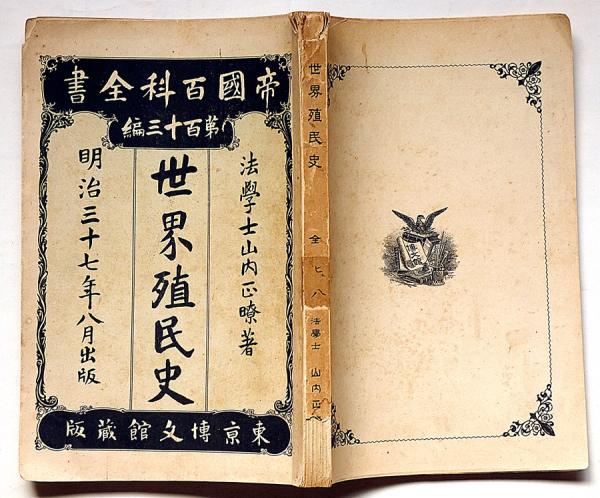 帝國百科全書
第百十三編
法學士山内正瞭著
世界殖民史
明治三十七年八月出版
東京博文館藏版
世界殖民史
全
法學士 山内正